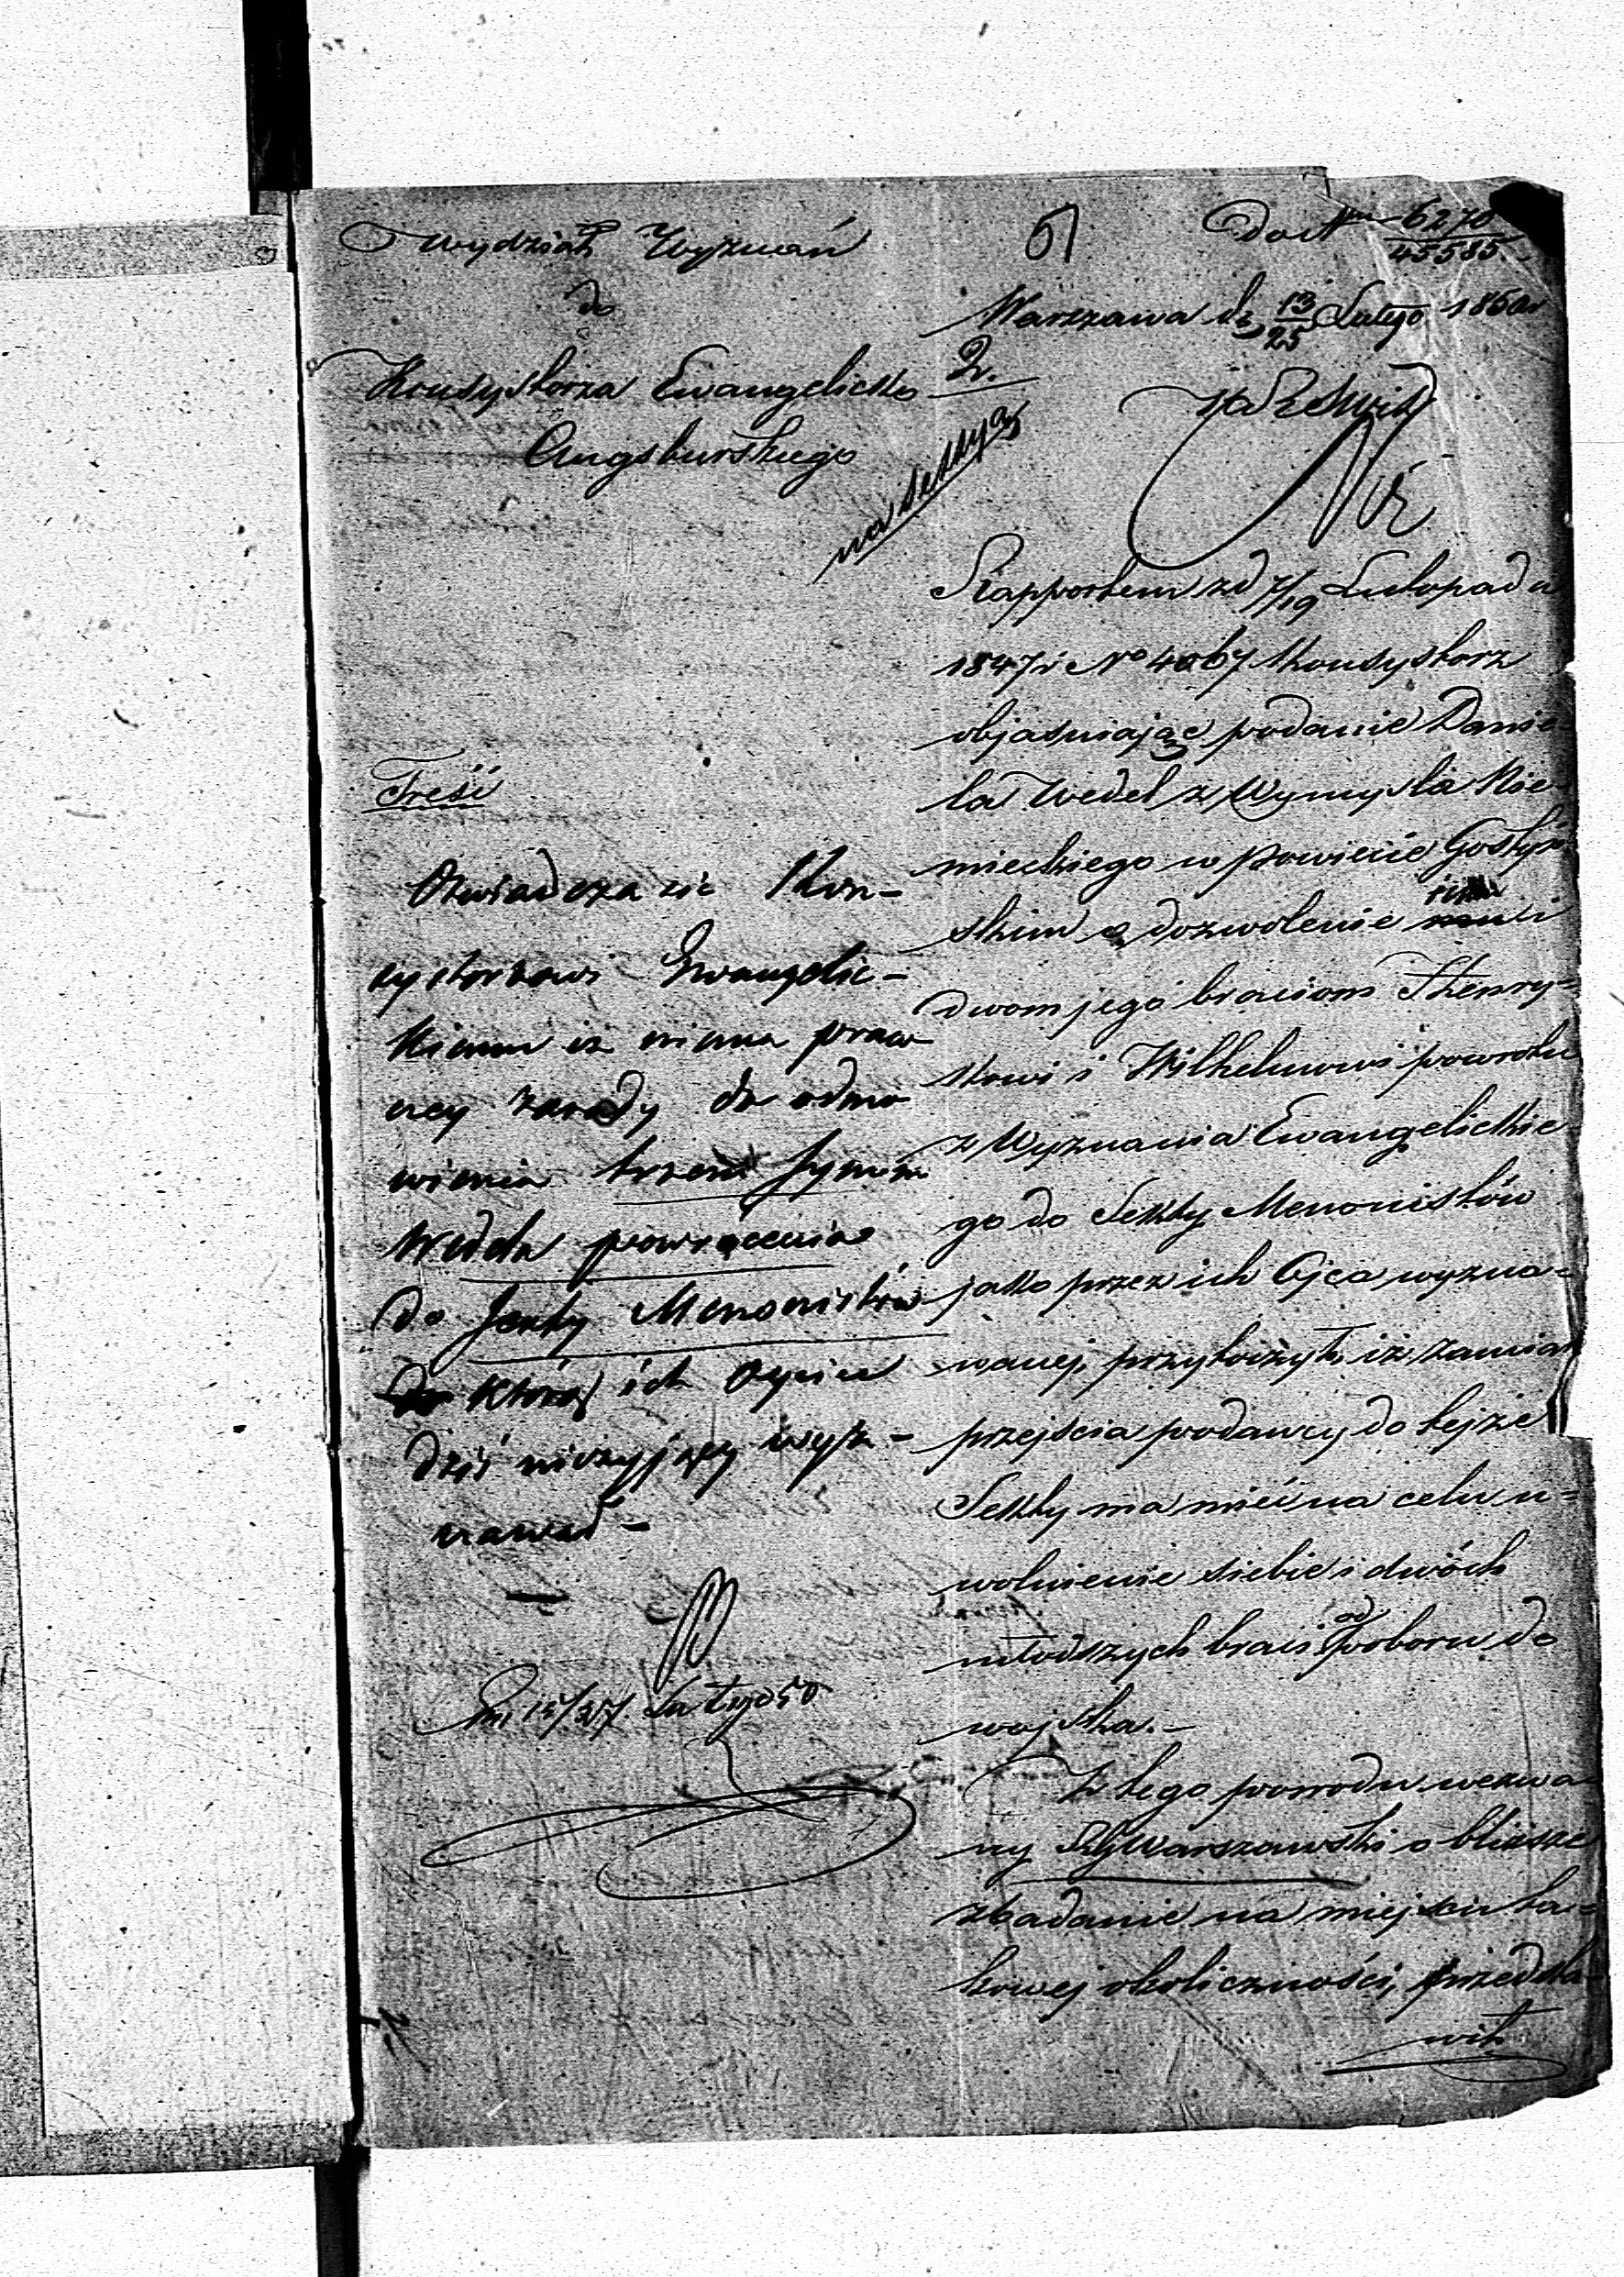 Wydział Wyznań
do
Konsystorza Ewangelicko
Augsburskiego
51
Do N 6270
45585.
Warszawa d. 13/25 Lutego 1850
2.
na sessyą
Treść
Oświadcza sie Kon-
systorzowi Ewangelic-
kiemu iż niema praw
nej zasady do odmo
wienia trzem synom
Wedla powrócenia
do Sekty Menonistów
którą ich Oyciec
dziś nieżyjący wyz-
nawał -
Dn. 15/27 Lutego 50
Rapportem z d 7/19 Listopada
1847 r No 4067 Konsystorz
objasniając podanie Danie-
la Wedel z Wymysla Nie-
mieckiego w powiecie Gostyń
skim o dozwolenie i
dwom jego braciom Henry-
kowi i Wilhelmowi powrotu
z Wyznania Ewangelickie
go do Sekty Menonistów
jako przez ich Ojca wyzna-
wanej, przytoczył, iż zamiar
przejścia podawcy do tejże
Sekty ma mieć na celu u-
wolnienie siebie i dwóch
młodszych braci od poboru do
wojska. -
Z tego powodu wezwa-
ny Warszawski o bliższe
zbadanie na miejscu ta-
kowej okoliczności, przedsta-
wił